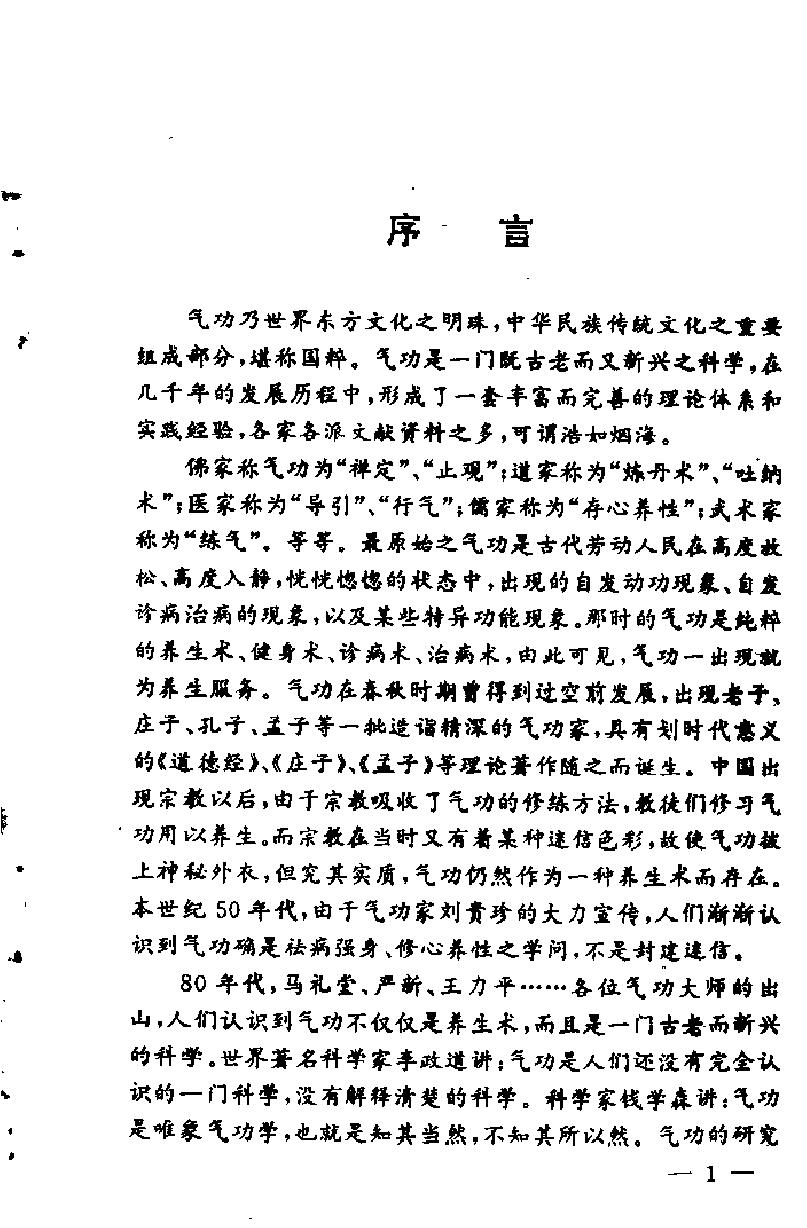 序 言
气功乃世界东方文化之明珠,中华民族传统文化之重要
组成部分,堪称国粹。气功是一门既古老而又新兴之科学,在
几千年的发展历程中,形成了一套丰富而完善的理论体系和
实践经验,各家各派文献资料之多,可谓浩如烟海。
佛家称气功为“禅定”、“止观”;道家称为“炼丹术”、“吐纳
术”;医家称为“导引”、“行气”;儒家称为“存心养性”;武术家
称为“练气”。等等。最原始之气功是古代劳动人民在高度放
松、高度入静,恍恍惚惚的状态中,出现的自发动功现象、自发
诊病治病的现象,以及某些特异功能现象。那时的气功是纯粹
的养生术、健身术、诊病术、治病术,由此可见,气功一出现就
为养生服务。气功在春秋时期曾得到过空前发展,出现老子、
庄子、孔子、孟子等一批造诣精深的气功家,具有划时代意义
的《道德经》、《庄子》、《孟子》等理论著作随之而诞生。中国出
现宗教以后,由于宗教吸收了气功的修练方法,教徒们修习气
功用以养生。而宗教在当时又有着某种迷信色彩,故使气功披
上神秘外衣,但究其实质,气功仍然作为一种养生术而存在。
本世纪50年代,由于气功家刘贵珍的大力宣传,人们渐渐认
识到气功确是祛病强身、修心养性之学问,不是封建迷信。
80年代,马礼堂、严新、王力平……各位气功大师的出
山,人们认识到气功不仅仅是养生术,而且是一门古老而新兴
的科学。世界著名科学家李政道讲:气功是人们还没有完全认
识的一门科学,没有解释清楚的科学。科学家钱学森讲:气功
是唯象气功学,也就是知其当然,不知其所以然。气功的研究
— 1 —